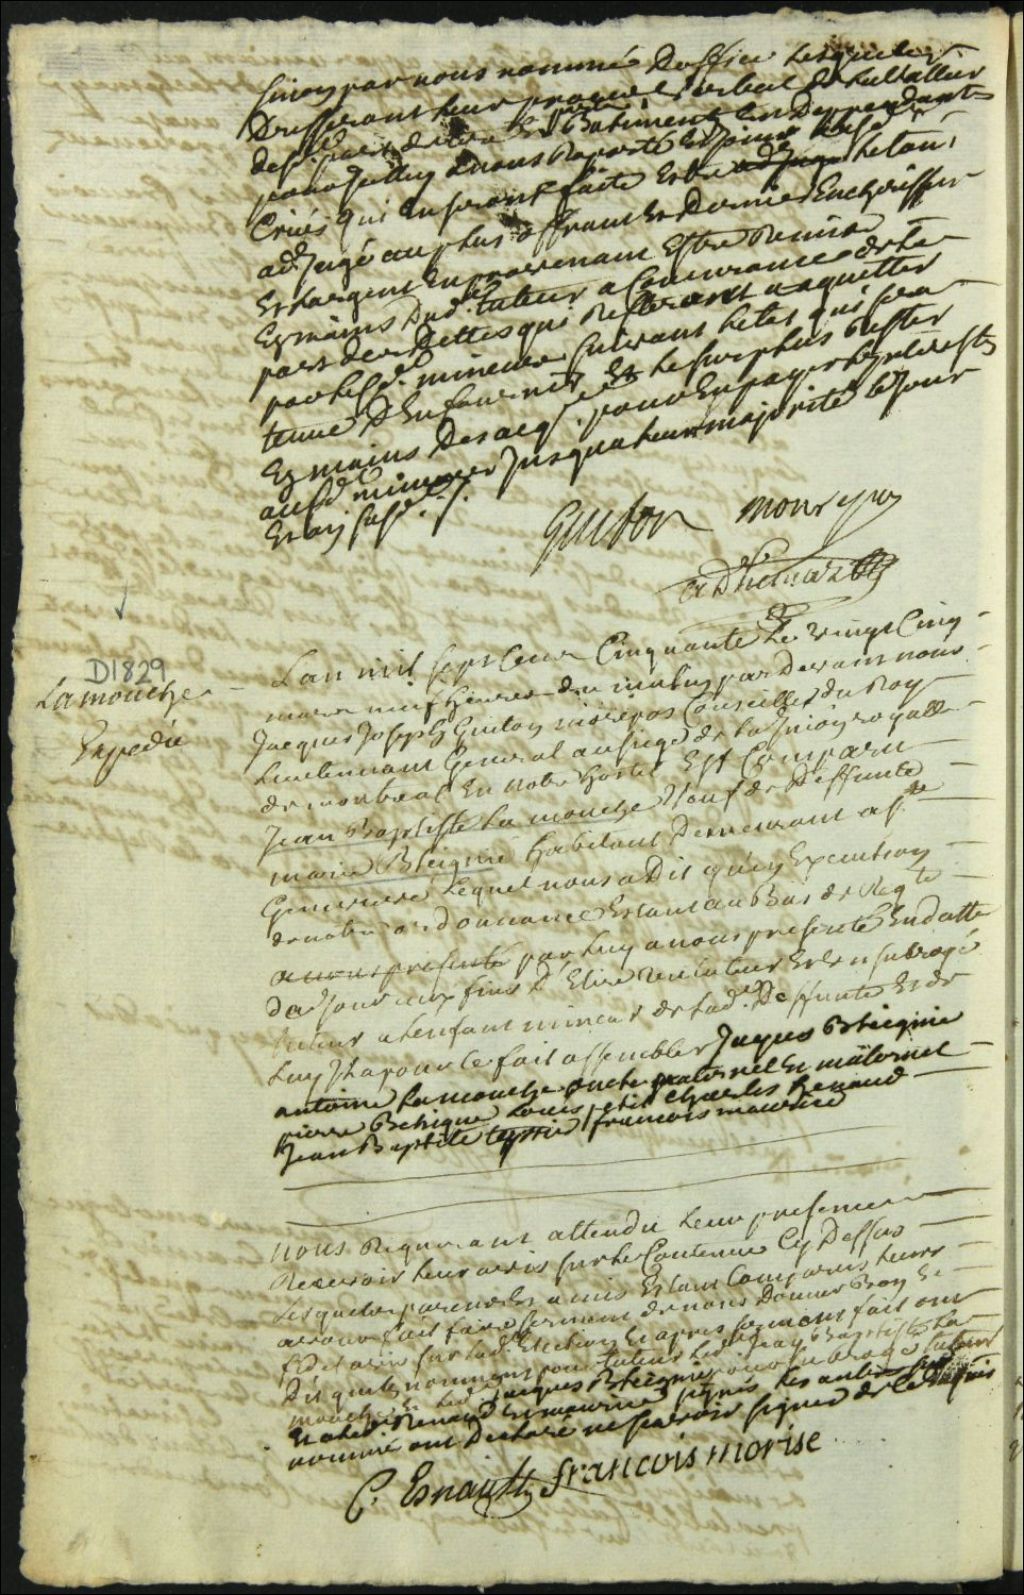 sinon par nous nommé Doffice Lesquels
Dresseront leur procés verbal de
des. parts Batiments En Dependant
pour Icelluy a nous Raporté Et
Criés qui en seront faite Estre
adjugé au plus offrant Et Dernier Encherisseur
Et Largent En provenant Estre Remise
Es mains Dud. tuteur a Concurrance de la
part des Dettes qui Resteront a aquitter
par lesd. mineurs suivant Letat qui sera
tenue D'En fournir Et Le surplus Rester
Es mains Des acq. pour En payer les Interests
ausd. mineurs Jusqua leur majorité le Jour
Et an susd. /.
Guiton monrepos
adhemar
D1829
Lamouche
Expedié
Lan mil sept Cent Cinquante Le vingt Cinq
mars neuf heures du matin par Devant nous
Jacques Joseph Guiton monrepos Conseiller du Roy
Lieutenant General au siege de La Jurion royalle
de montreal En notre hostel Est Comparu
Jean Baptiste La mouche Veuf de Deffunte
marie habitant Demeurant a ste
Genevieve Lequel nous a Dit qu'en Execution
de notre ordonnance Estant au Bas de Reqte
a nous presenté par luy a nous presenté En datte
Da Jour aux fins D'Elire un tuteur Et un subrogé
tuteur a Lenfant mineur de lad. Deffunte Et de
Luy Il a pour Ce fait assembler Jaques
antoine Lamouche oncle paternel Et maternel
pierre Louis petit Charles Renaud
Jean Baptiste francois maurice
nous Requerant attendu Leur presence
Recevoir leur avis sur Le Contenue Cy Dessus
Lesquels parents Et amis Estant Comparus Leurs
avons fait faire serment de nous Donner Bon Et
fidel avis sur lad. Election Et apres serment fait ont
Dit quils nomment pour tuteur Led. Jean Baptiste La
mouche Et Led. Jacques pour subrogé tuteur
Et ont Renaud Et maurice signés Les autres
nommé ont Declaré ne scavoir signer de Ce Enquis
C. Esnault francois morise